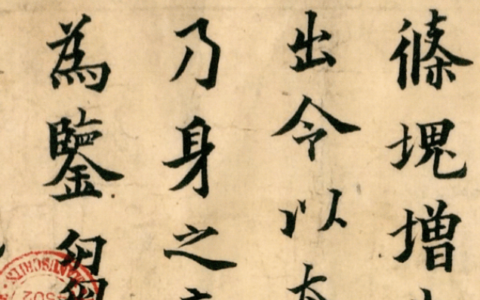 條塊增
出令以
乃身之
為鑒